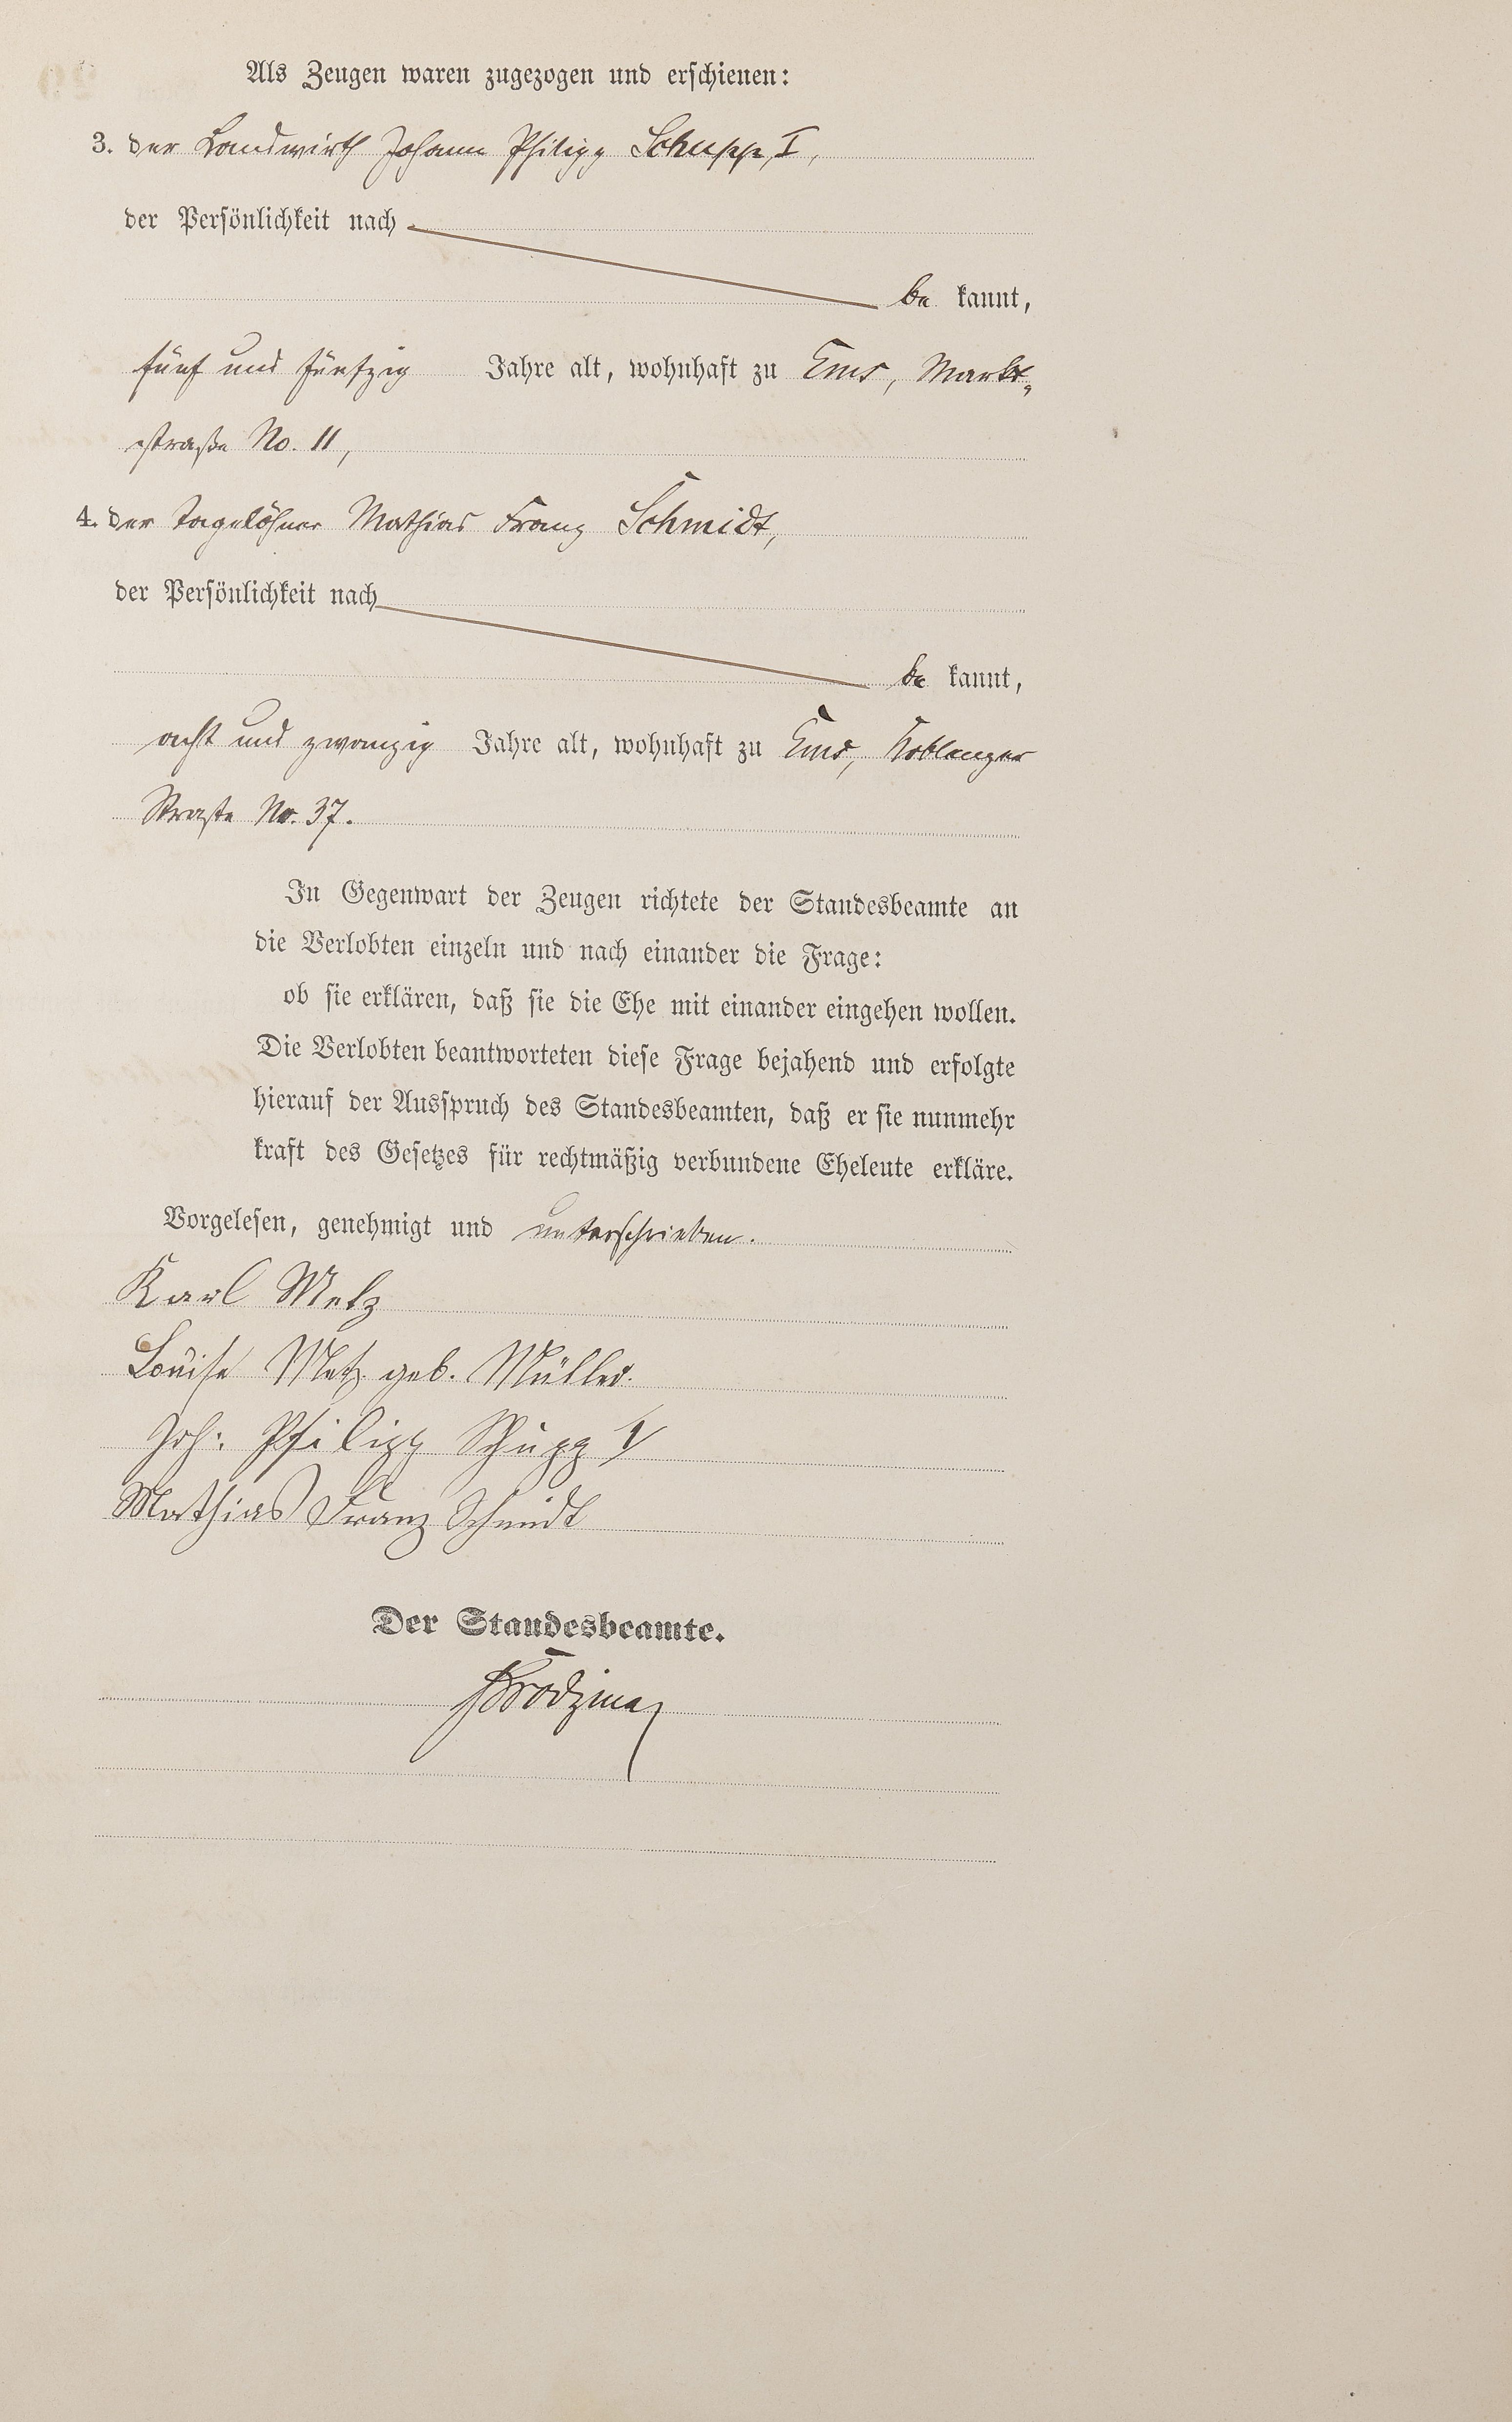 Als Zeugen waren zugezogen und erschienen:
3. der Landwirth Johann Philipp Schupp, I,
der Persönlichkeit nach
be kannt,
fünf und fünfzig Jahre alt, wohnhaft zu Ems, Markt-
straße No. 11,
4. der Tagelöhner Mathias Franz Schmidt,
der Persönlichkeit nach
be kannt,
acht und zwanzig Jahre alt, wohnhaft zu Ems, Koblenzer
Straße No. 37.
In Gegenwart der Zeugen richtete der Standesbeamte an
die Verlobten einzeln und nach einander die Frage:
ob sie erklären, daß sie die Ehe mit einander eingehen wollen.
Die Verlobten beantworteten diese Frage bejahend und erfolgte
hierauf der Ausspruch des Standesbeamten, daß er sie nunmehr
kraft des Gesetzes für rechtmäßig verbundene Eheleute erkläre.
Vorgelesen, genehmigt und unterschrieben.
Karl Metz
Louise Metz geb. Müller.
Joh: Philipp Schupp I
Mathias Franz Schmidt
Der Standesbeamte.